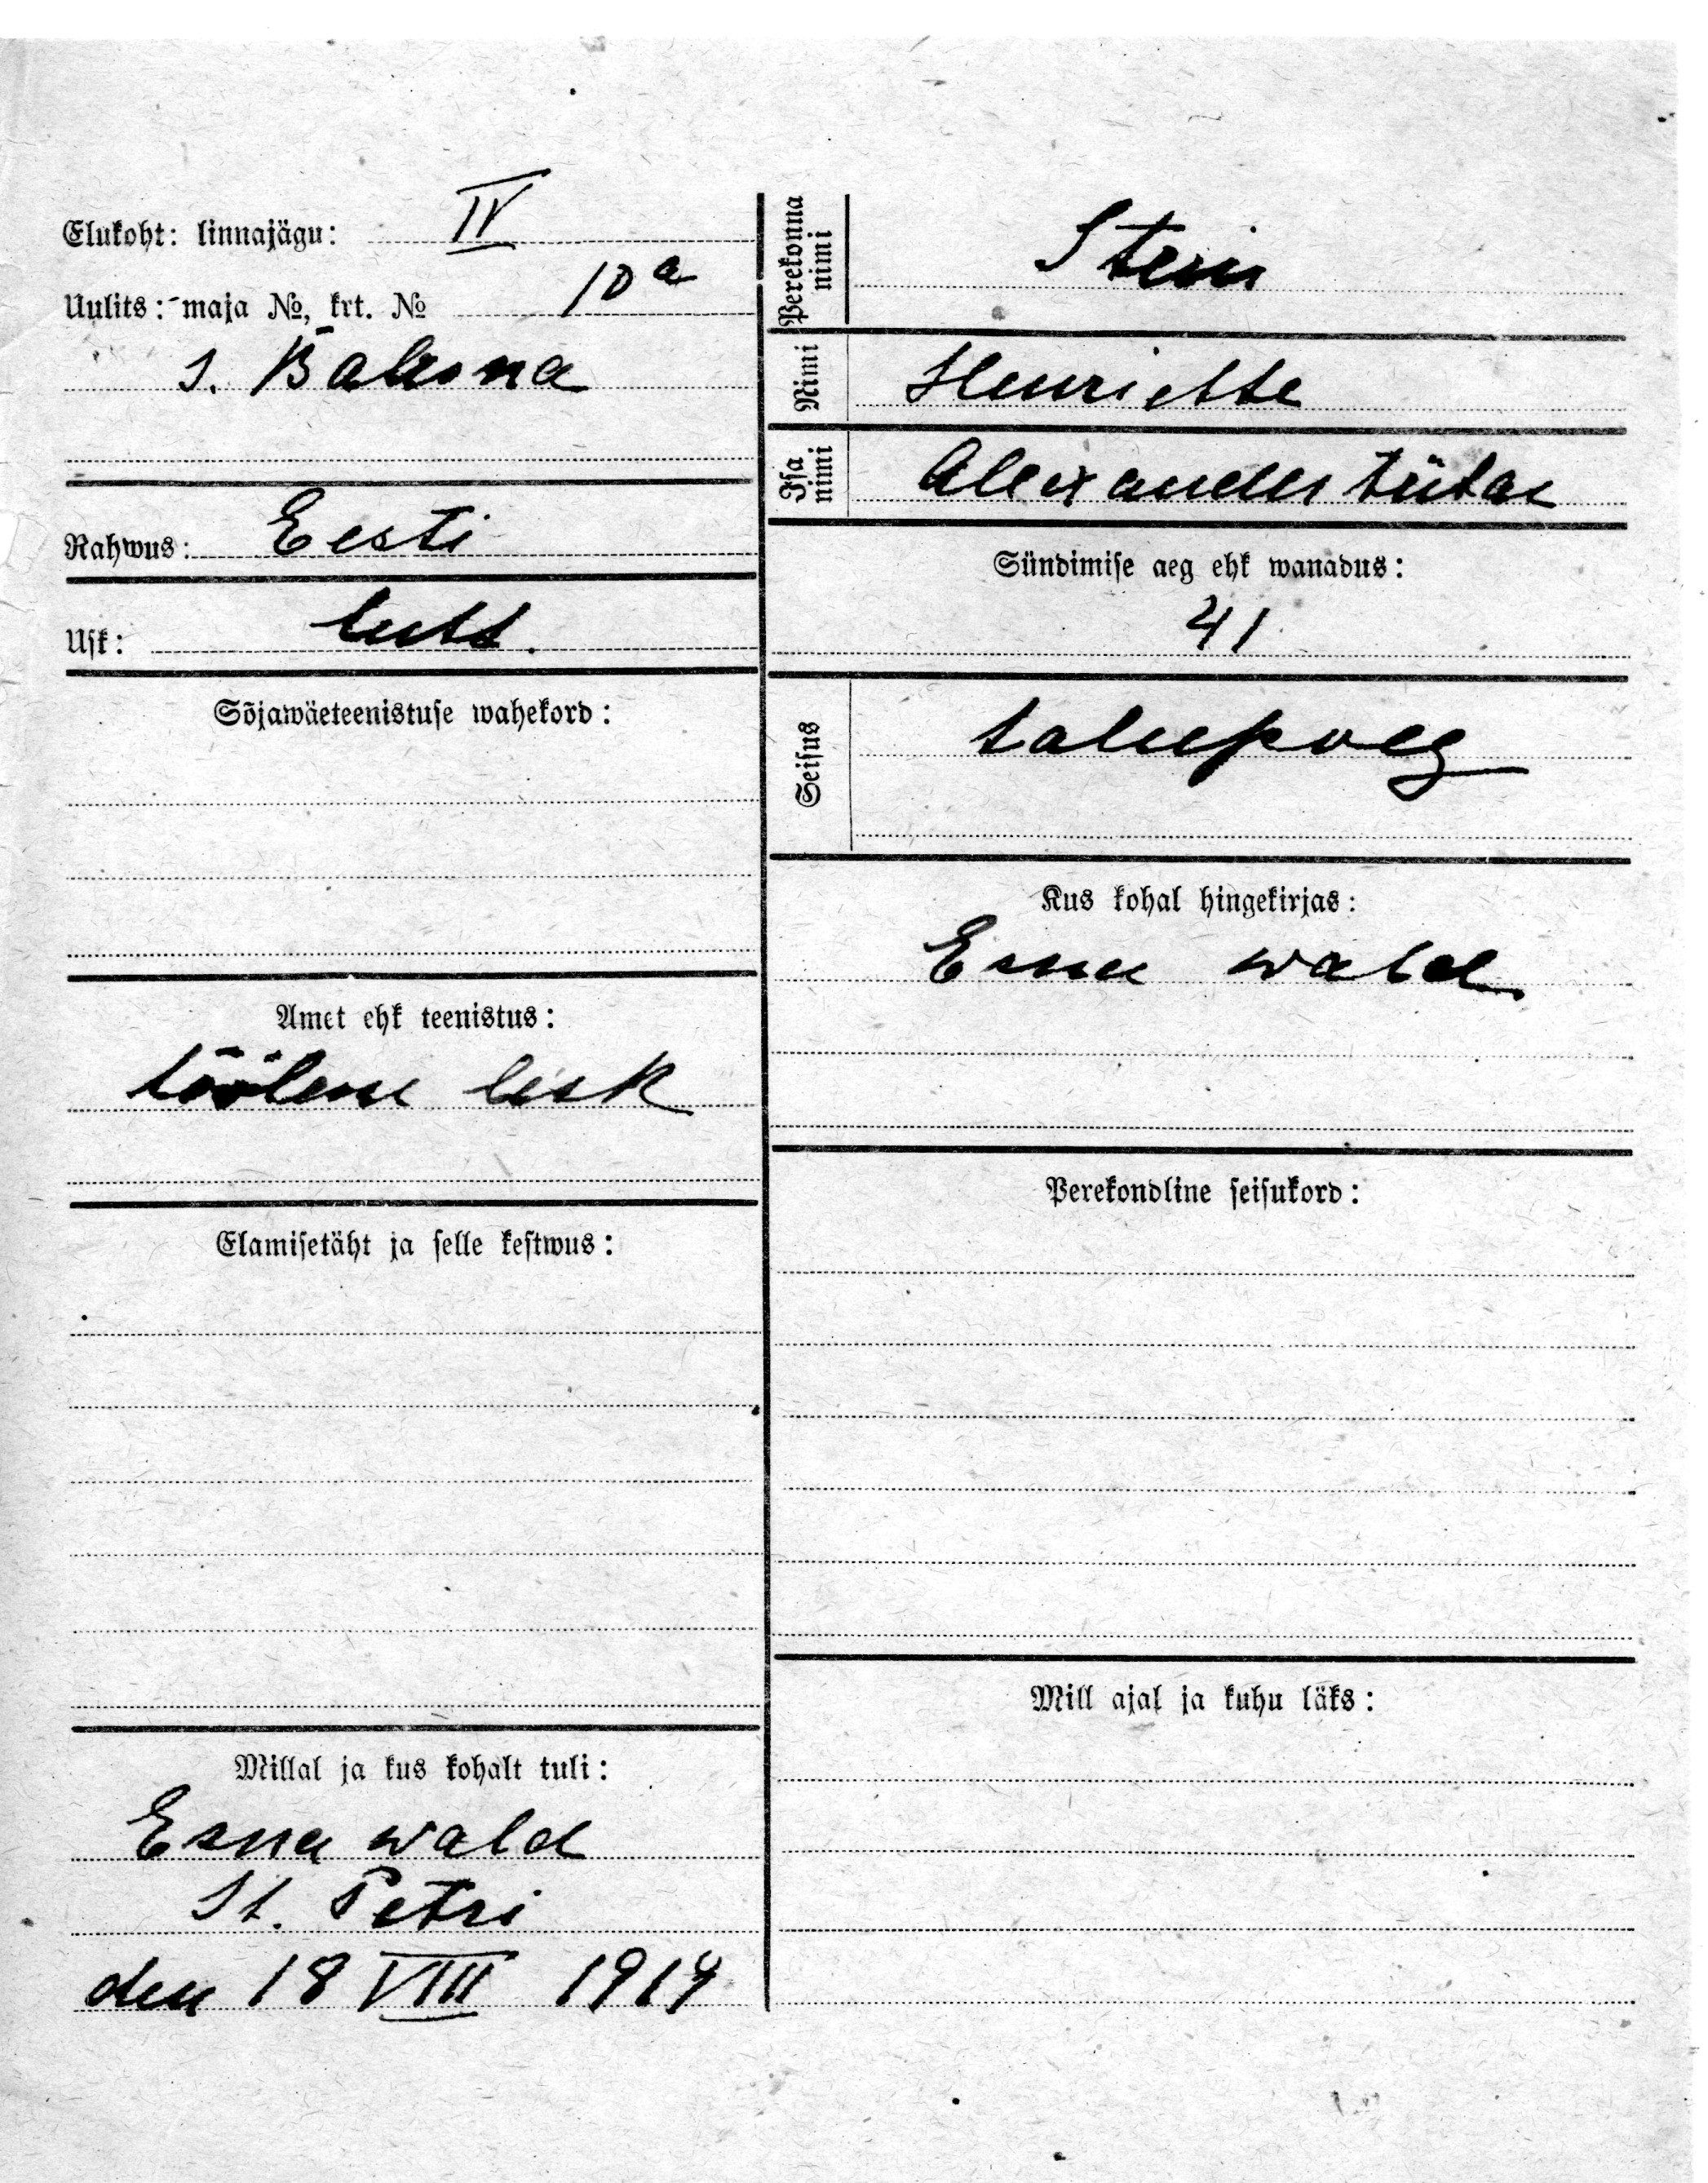 Elukoht: linnajägu: IV
Uulits: maja №, krt. № 10 a
s.
Rahwus: Eesti
Usk: luth.
Sõjawäeteenistuse wahekord:
Amet ehk teenistus:
töölene lesk
Elamisetäht ja selle kestwus:
Millal ja kus kohalt tuli:
Esna wald
St. Petri
den 18 VIII 1919
Perekonna nimi
Stein
Nimi Henriette
Isa nimi Alexander tütar
Sündimise aeg ehk wanadus:
41
Seisus talupoeg
Kus kohal hingekirjas:
Esna wald
Perekondline seisukord:
Mill ajal ja kuhu läks: